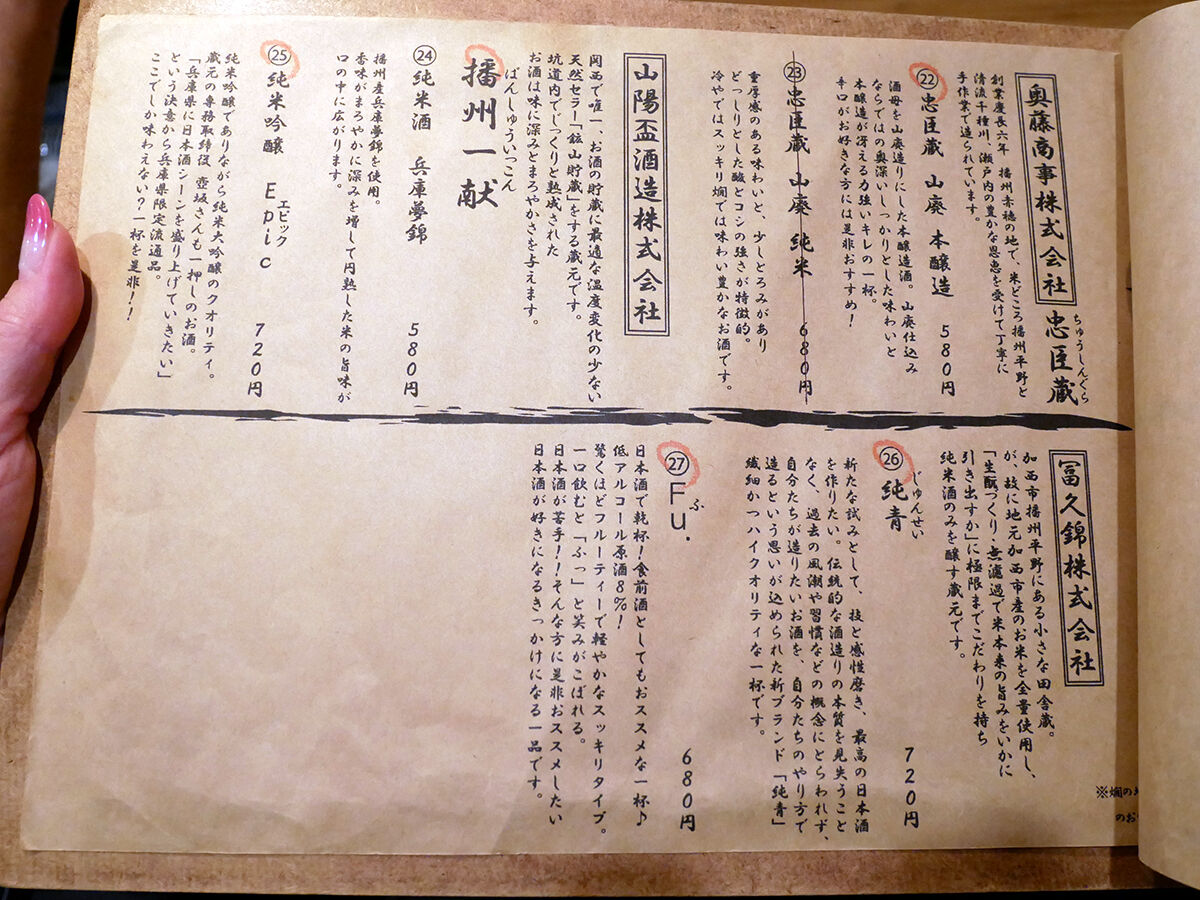 奥藤商事株式会社
忠臣蔵
ちゅうしんぐら
創業慶長六年 播州赤穂の地で、米どころ播州平野と
清流千種川、瀬戸内の豊かな恩恵を受けて丁寧に
手作業で造られています。
㉒ 忠臣蔵 山廃 本醸造 580円
酒母を山廃造りにした本醸造酒。山廃仕込み
ならではの奥深いしっかりとした味わいと
本醸造が冴える力強いキレの一杯。
辛口がお好きな方には是非おすすめ!
㉓ 忠臣蔵 山廃 純米 680円
重厚感のある味わいと、少しとろみがあり
どっしりとした酸とコシの強さが特徴的。
冷やではスッキリ燗では味わい豊かなお酒です。
山陽盃酒造株式会社
関西で唯一、お酒の貯蔵に最適な温度変化の少ない
天然セラー「鉱山貯蔵」をする蔵元です。
坑道内でじっくりと熟成された
お酒は味に深みとまろやかさを与えます。
播州一献
ばんしゅういっこん
㉔ 純米酒 兵庫夢錦 580円
播州産兵庫夢錦を使用。
香味がまろやかに深みを増して円熟した米の旨味が
口の中に広がります。
㉕ 純米吟醸 Epic 720円
エピック
純米吟醸でありながら純米大吟醸のクオリティ。
蔵元の専務取締役 壺坂さんも一押しのお酒。
「兵庫県に日本酒シーンを盛り上げていきたい」
という決意から兵庫県限定流通品。
ここでしか味わえない?一杯を是非!!
冨久錦株式会社
加西市播州平野にある小さな田舎蔵。
が、故に地元加西市産のお米を全量使用し、
「生酛づくり・無濾過で米本来の旨みをいかに
引き出すか」に極限までこだわりを持ち
純米酒のみを醸す蔵元です。
㉖ 純青 720円
じゅんせい
新たな試みとして、技と感性磨き、最高の日本酒
を作りたい。伝統的な酒造りの本質を見失うこと
なく、過去の風潮や習慣などの概念にとらわれず、
自分たちが造りたいお酒を、自分たちのやり方で
造るという思いが込められた新ブランド「純青」
繊細かつハイクオリティな一杯です。
㉗ Fu. 680円
ふ
日本酒で乾杯!食前酒としてもおススメな一杯♪
低アルコール原酒8%!
驚くほどフルーティーで軽やかなスッキリタイプ。
一口飲むと「ふっ」と笑みがこぼれる。
日本酒が苦手!!そんな方に是非おススメしたい
日本酒が好きになるきっかけになる一品です。
※燗の
のお